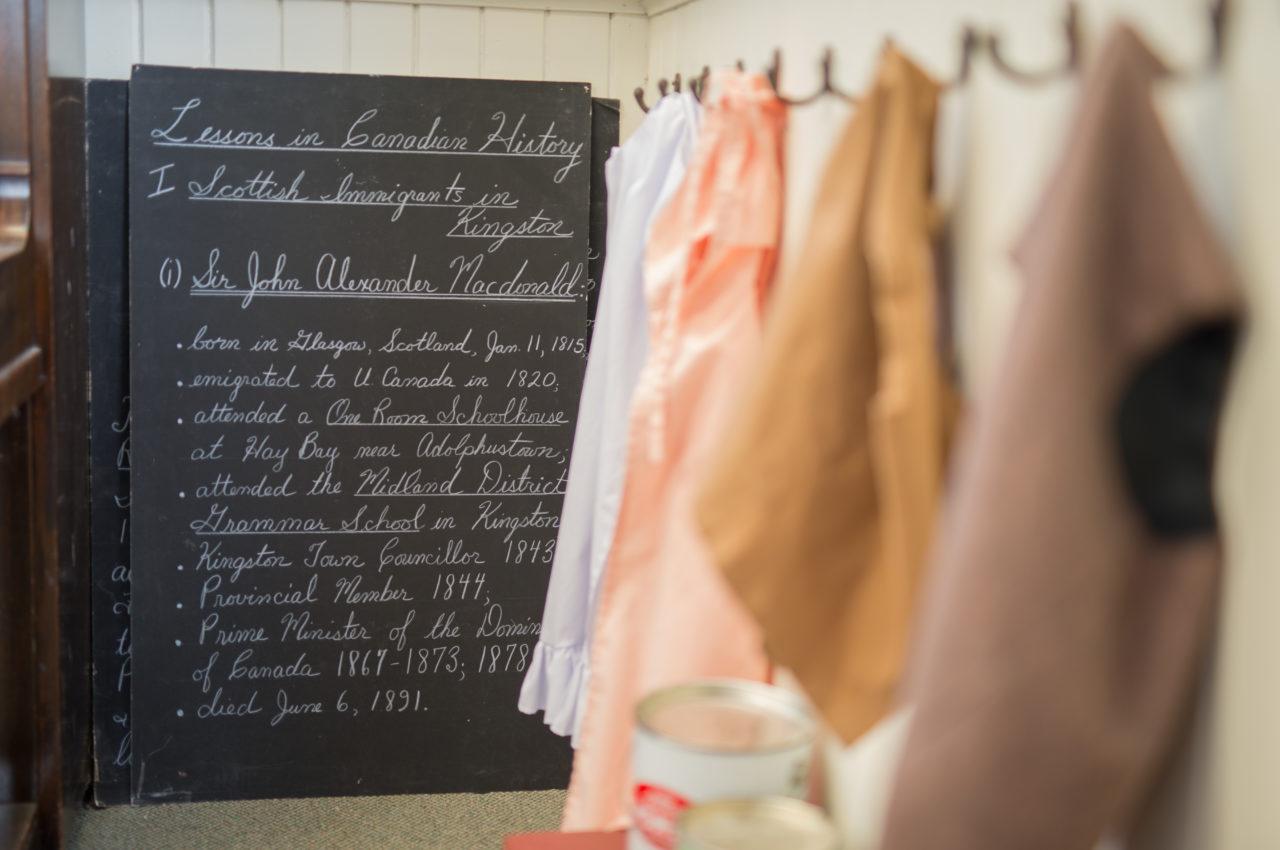 Lessons in Canadian History
I Scottish Immigrants in
Kingston
(i) Sir John Alexander Macdonald:
. born in Glasgow, Scotland, Jan. 11, 1815;
. emigrated to U. Canada in 1820;
. attended a One Room Schoolhouse
at Hay Bay near Adolphustown;
. attended the Midland District
Grammar School in Kingston
. Kingston Town Councillor 1843
. Provincial Member 1844;
. Prime Minister of the Domin
of Canada 1867-1873; 1878
. died June 6, 1891.